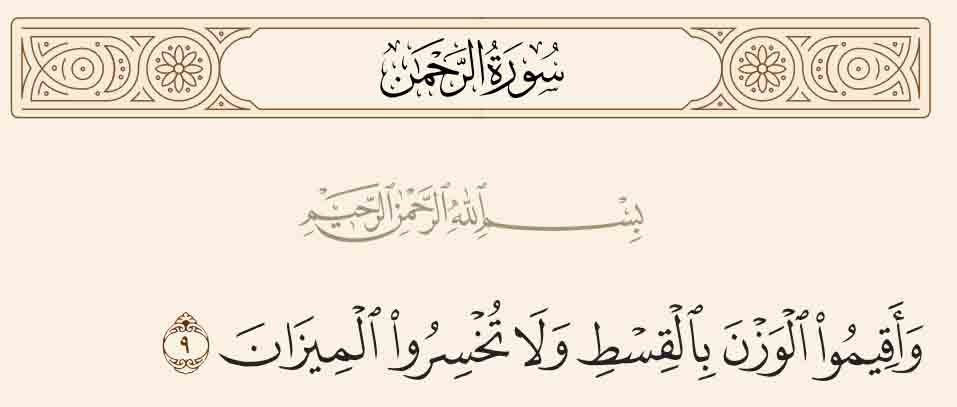 سُورَةُ الرَّحْمَٰن
بِسْمِ ٱللَّهِ ٱلرَّحْمَٰنِ ٱلرَّحِيمِ
وَأَقِيمُوا۟ ٱلْوَزْنَ بِٱلْقِسْطِ وَلَا تُخْسِرُوا۟ ٱلْمِيزَانَ ٩